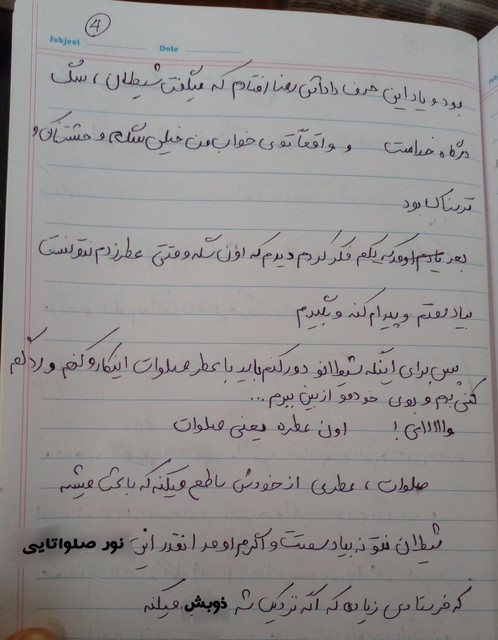 4
Subject
Date
بود و یاد این حرف داداش رضا افتادم که میگفت شیطان، سگ
درگاه خداست و واقعاً توی خواب من خیلی شلم وحشتناک و
ترسناک بود
بعد یکم فکر کردم دیدم که اون سگه وقتی عطر زدم نتونست
بیاد سمتم و پیدام کنه و
پس برای اینکه شیطانو دور کنم باید با عطر صلوات اینکارو کنم و رد گم
کنی بدم و بوی خودمو از بین ببرم ...
وااااای ! اون عطره یعنی صلوات
صلوات، عطری از خودش ساطع میکنه که باعث میشه
شیطان نتونه بیاد سمت و اگرم اومد انقدر این نور صلواتایی
که فرستادی زیاده که اگه نزدیک شه ذوبش میکنه